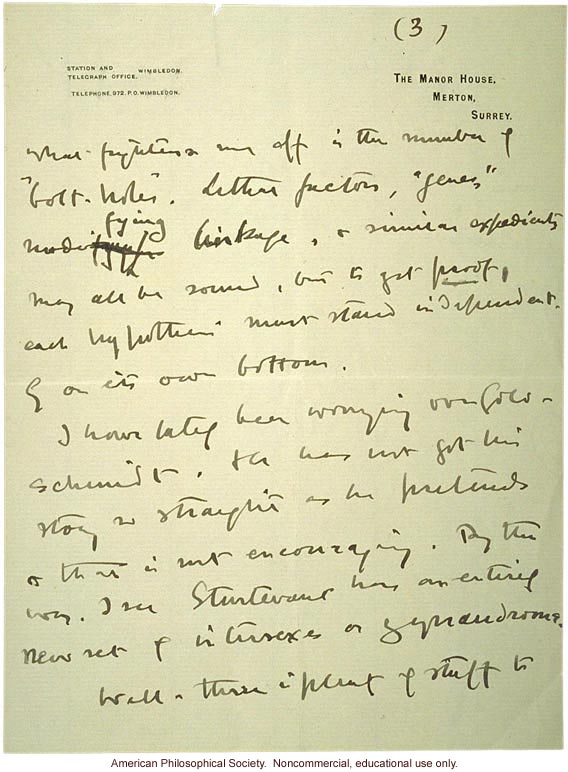 (3)
STATION AND
TELEGRAPH OFFICE. WIMBLEDON.
TELEPHONE, 972, P.O. WIMBLEDON.
THE MANOR HOUSE,
MERTON,
SURREY.
what frightens me off is the number of
"bolt-holes". Lethal factors, "genes"
modifying linkage, & similar expedients
may all be sound, but to get proof,
each hypothesis must stand independent-
ly on its own bottom.
I have lately been worrying over Gold-
schmidt. He has not got his
story so straight as he pretends
& that is not encouraging. By the
way, I see Sturtevant has an entirely
new set of intersexes or gynandroms.
Well – there is plenty of stuff to
American Philosophical Society. Noncommercial, educational use only.